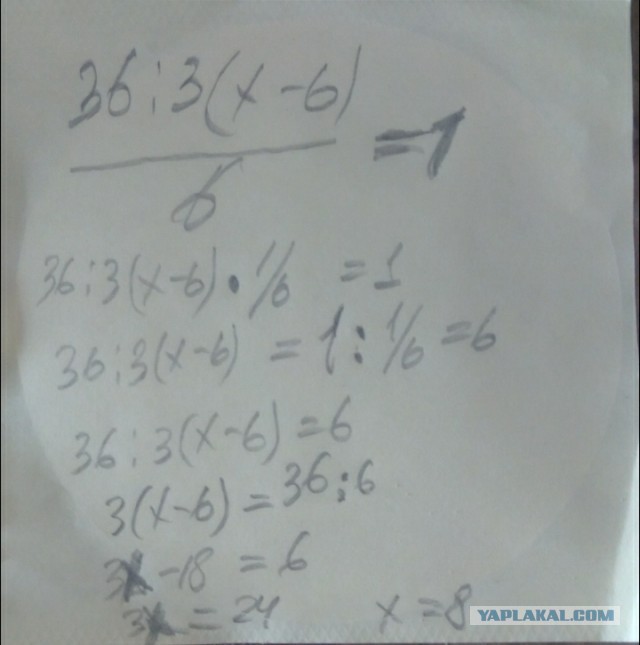 36 : 3(x - 6)
6
= 1
36 : 3(x - 6) • 1/6 = 1
36 : 3(x - 6) = 1 : 1/6 = 6
36 : 3(x - 6) = 6
3(x - 6) = 36 : 6
3x - 18 = 6
3x = 24 x = 8
YAPLAKAL.COM